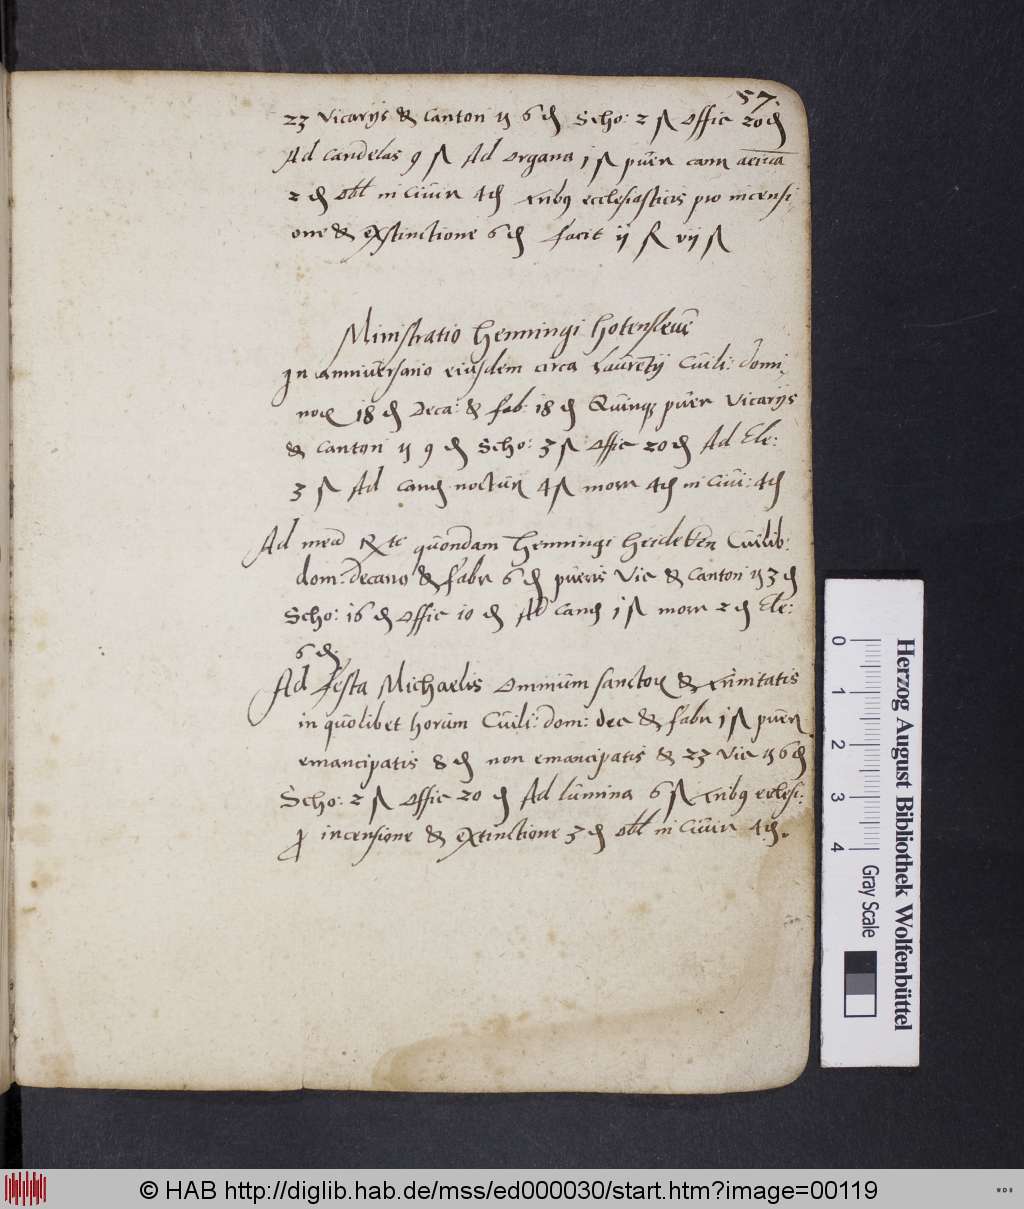 57.
23 Vicarijs & Canton ij 6 ₰ Scho: 2 ß Offic 20 ₰
Ad Candelas 9 ß Ad Organa 1 ß puer cam
2 ₰ Obl in Civir 4 ₰ ecclesiasticis pro incensi
one & Extinctione 6 ₰ facit ij vij ß
Ministratio Henningi Hotensleue
In anniversario eiusdem circa Laurētij Cuili: domi
noꝝ 18 ₰ Deca: & fab: 18 ₰ Quinqꝫ puer Vicarijs
& Canton ij 9 ₰ Scho: 3 ß Offic 20 ₰ Ad Ele:
3 ß Ad Cand nocturn 4 ß morr 4 ₰ in Civi: 4 ₰
Ad mēā quondam Henningi Heideken Cuilib:
dom: decano & fabr 6 ₰ pueris Vic & Canton ij 3 ₰
Scho: 16 ₰ Offic 10 ₰ Ad Cand 1 ß morr 2 ₰ Ele:
6 ₰
Ad Festa Michaelis Omnium sanctoꝝ & Trinitatis
in quolibet horum Cuili: dom: dec & fabr 1 ß puer
emancipatis 8 ₰ non emancipatis & 23 Vic ij 6 ₰
Scho: 2 ß Offic 20 ₰ Ad Lumina 6 ß ecclesi:
ꝓ incensione & extinctione 3 ₰ Obl in Civir 4 ₰.
Herzog August Bibliothek Wolfenbüttel
0 1 2 3 4 Gray Scale
© HAB http://diglib.hab.de/mss/ed000030/start.htm?image=00119